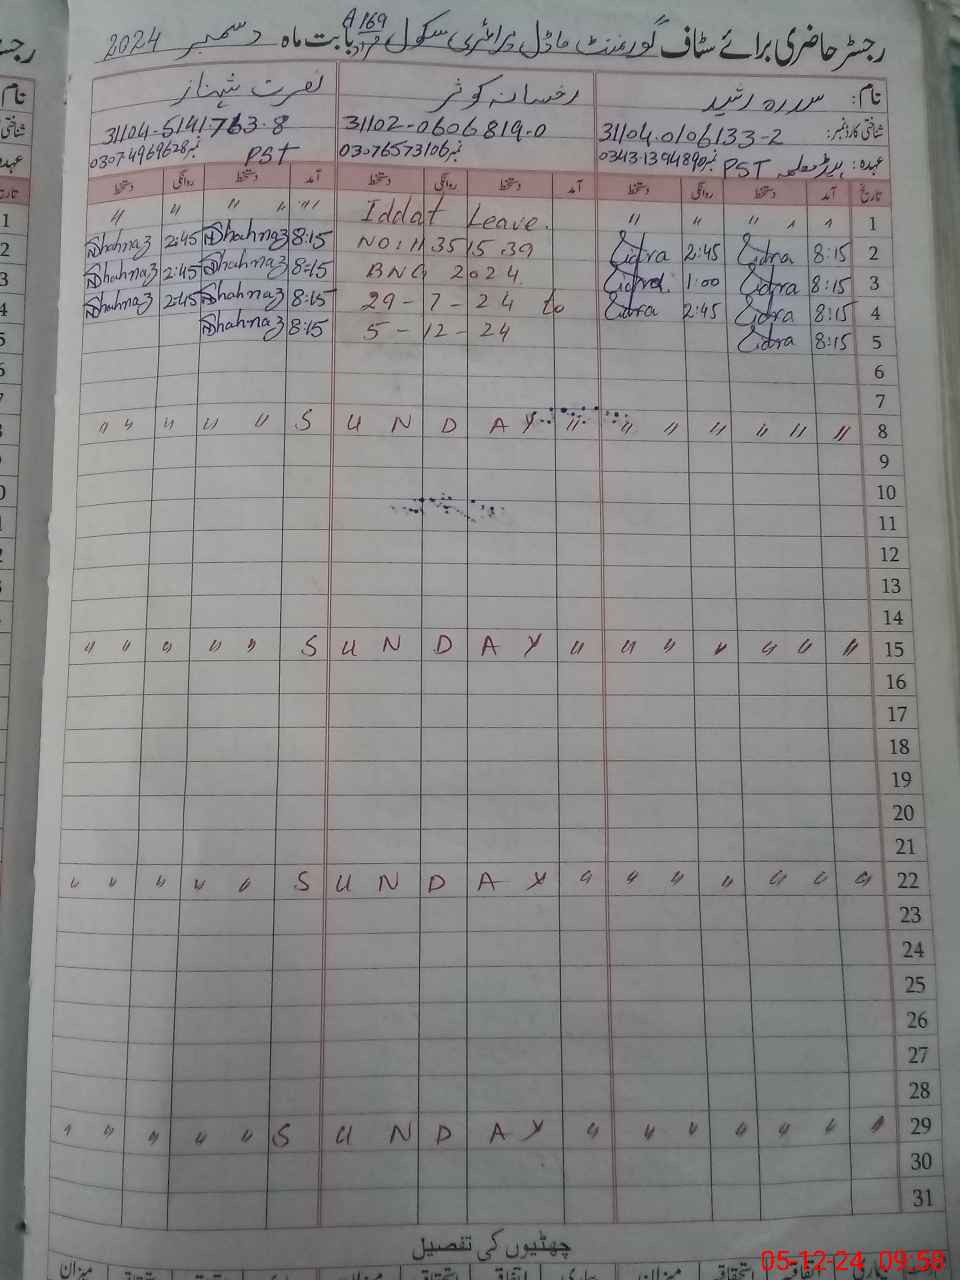 رجسٹر حاضری برائے سٹاف گورنمنٹ ماڈل پرائمری سکول 169 مراد بابت ماہ دسمبر 2024
نام: سدرہ رشید رخسانہ کوثر نصرت شہناز
شناختی کارڈ نمبر: 31104.0106133-2 31102-0606819-0 31104-5141763-8
عہدہ: ہیڈ معلمہ PST نمبر 0343-1394890 نمبر 03076573106 PST نمبر 0307-4969628
تاریخ آمد دستخط روانگی دستخط آمد دستخط روانگی دستخط آمد دستخط روانگی دستخط
1 " " " " " Iddat Leave. " " " " "
2 8:15 Sidra 2:45 Sidra NO: 1135 15 39 8:15 Shahnaz 2:45 Shahnaz
3 8:15 Sidra 1:00 Sidra BNG 2024 8:15 Shahnaz 2:45 Shahnaz
4 8:15 Sidra 2:45 Sidra 29-7-24 to 8:15 Shahnaz 2:45 Shahnaz
5 8:15 Sidra 5-12-24 8:15 Shahnaz
6
7
" " " " " S U N D A Y " " " " " " " 8
9
10
11
12
13
14
" " " " " S U N D A Y " " " " " " " 15
16
17
18
19
20
21
" " " " " S U N D A Y " " " " " " " 22
23
24
25
26
27
28
" " " " " S U N D A Y " " " " " " " 29
30
31
چھٹیوں کی تفصیل
میزان
05-12-24 09:58